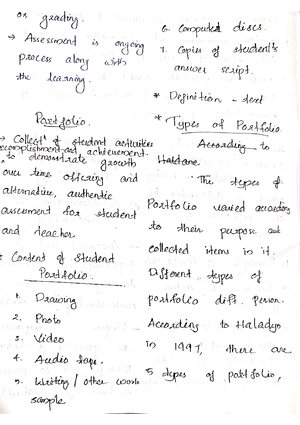 or grading.
→ Assessment is ongoing
process along with
the learning.
Portfolio.
→ Collectn of student activities
accomplishment and achievement.
to demonstrate growth
over time offering and
alternative, authentic
assessment for student
and teacher
* Content of Student
Portfolio.
1. Drawing
2. Photo
3. Video
4. Audio tape.
5. Writing / other work
sample
6. Computer discs.
7. Copies of student's
answer script.
* Definition - text
* Types of Portfolio
According to
Haldane
The types of
Portfolio varied according
to their purpose and
collected items in it.
Different types of
portfolio diff. person.
According to Haladyo
in 1997, there are
5 types of portfolio,